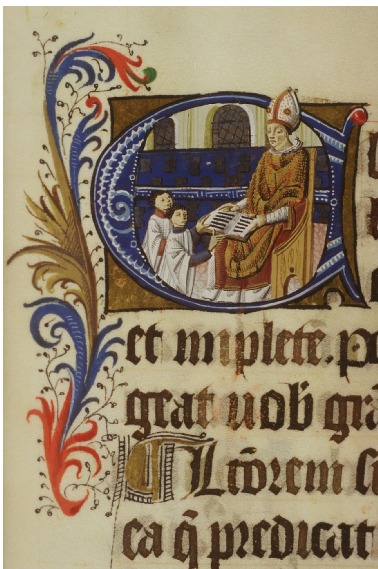 E
et implete. po
geat uob̄ gra
Lc̄orem si
ea q̄ predicat